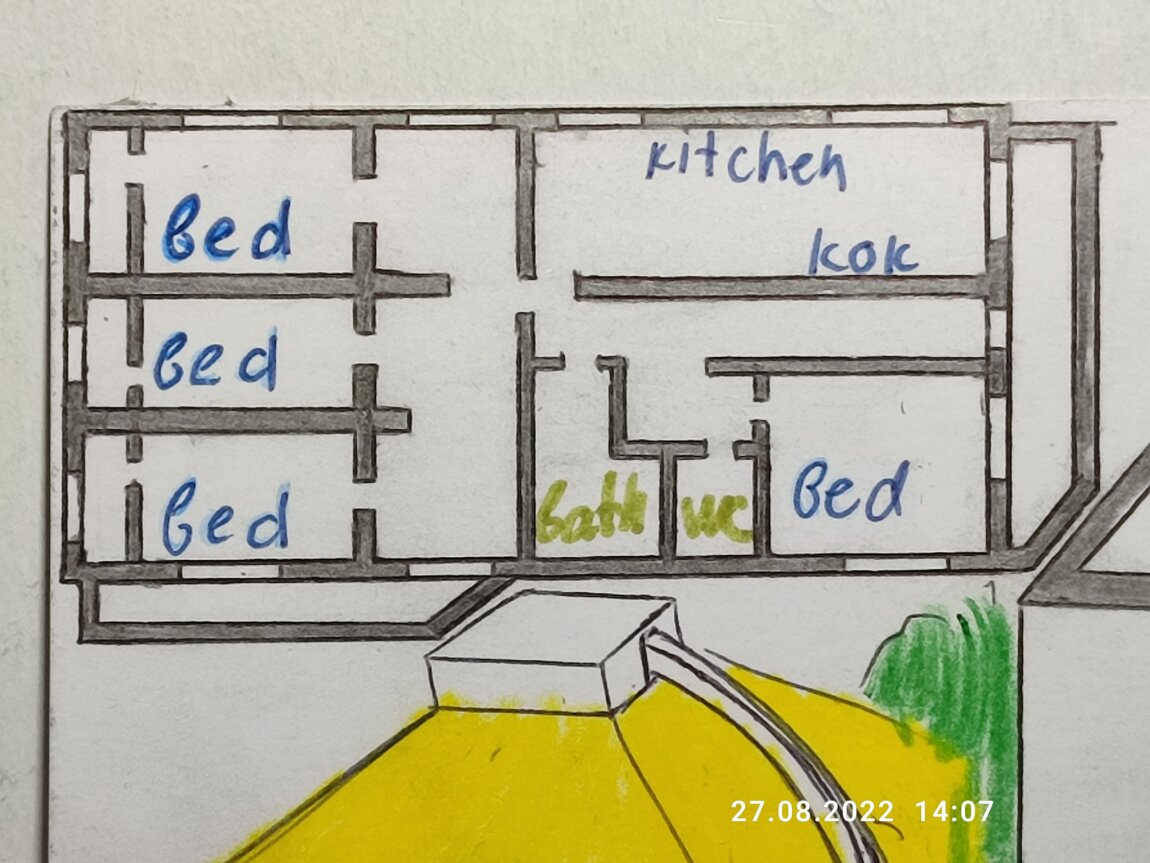 kitchen
kok
Bed
Bed
Bed
Bed
bath wc
27.08.2022 14:07